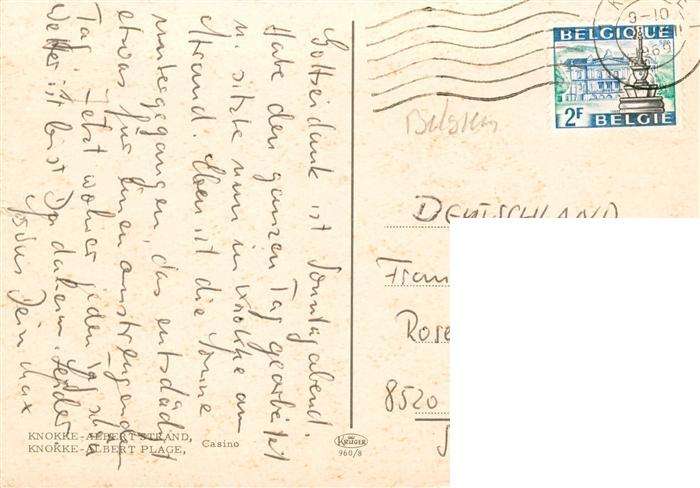 Gottseidank ist Sonntagabend.
Habe den ganzen Tag gearbeitet
u. sitze nun in Knokke am
Strand. Eben ist die Sonne
untergegangen, das entschädigt
etwas für einen anstrengenden
Tag. Jetzt wo hier jeden Tag
Wetter ist bist Du daheim. Leider
Dein Max
KNOKKE-ALBERT STRAND,
KNOKKE-ALBERT PLAGE,
Casino
KRÜGER
960/8
BELGIQUE
2F
BELGIË
9-10
1969
Belgien
DEUTSCHLAND
Frau
Rose
8520